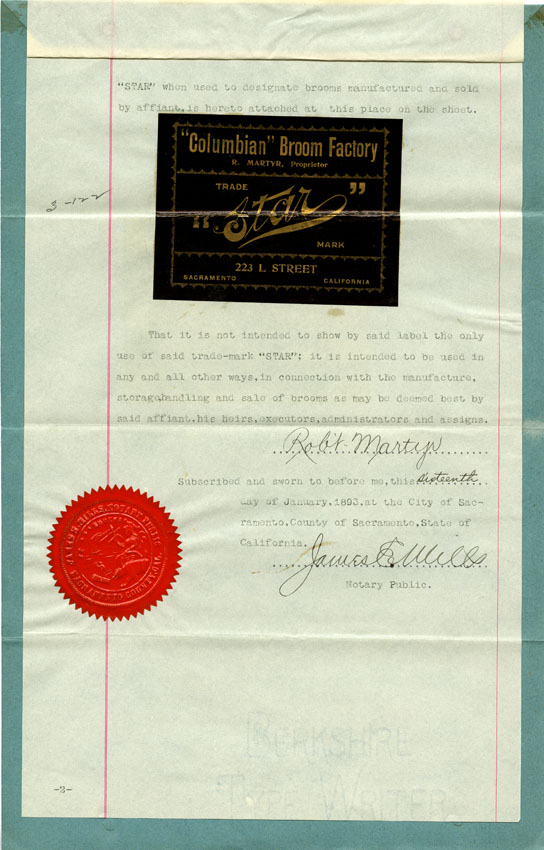 "STAR" when used to designate brooms manufactured and sold
by affiant,is hereto attached at this place on the sheet.
"Columbian" Broom Factory
R. MARTYR, Proprietor
TRADE
"Star"
MARK
223 L STREET
SACRAMENTO CALIFORNIA
3-122
That it is not intended to show by said label the only
use of said trade-mark "STAR"; it is intended to be used in
any and all other ways,in connection with the manufacture,
storage,handling and sale of brooms as may be deemed best by
said affiant,his heirs,executors,administrators and assigns.
Robt Martyr
Subscribed and sworn to before me,this sixteenth
day of January,1893,at the City of Sac-
ramento,County of Sacramento,State of
California.
James E Mills
Notary Public.
JAMES E. MILLS, NOTARY PUBLIC
SACRAMENTO CO.
BERKSHIRE
TYPE-WRITER